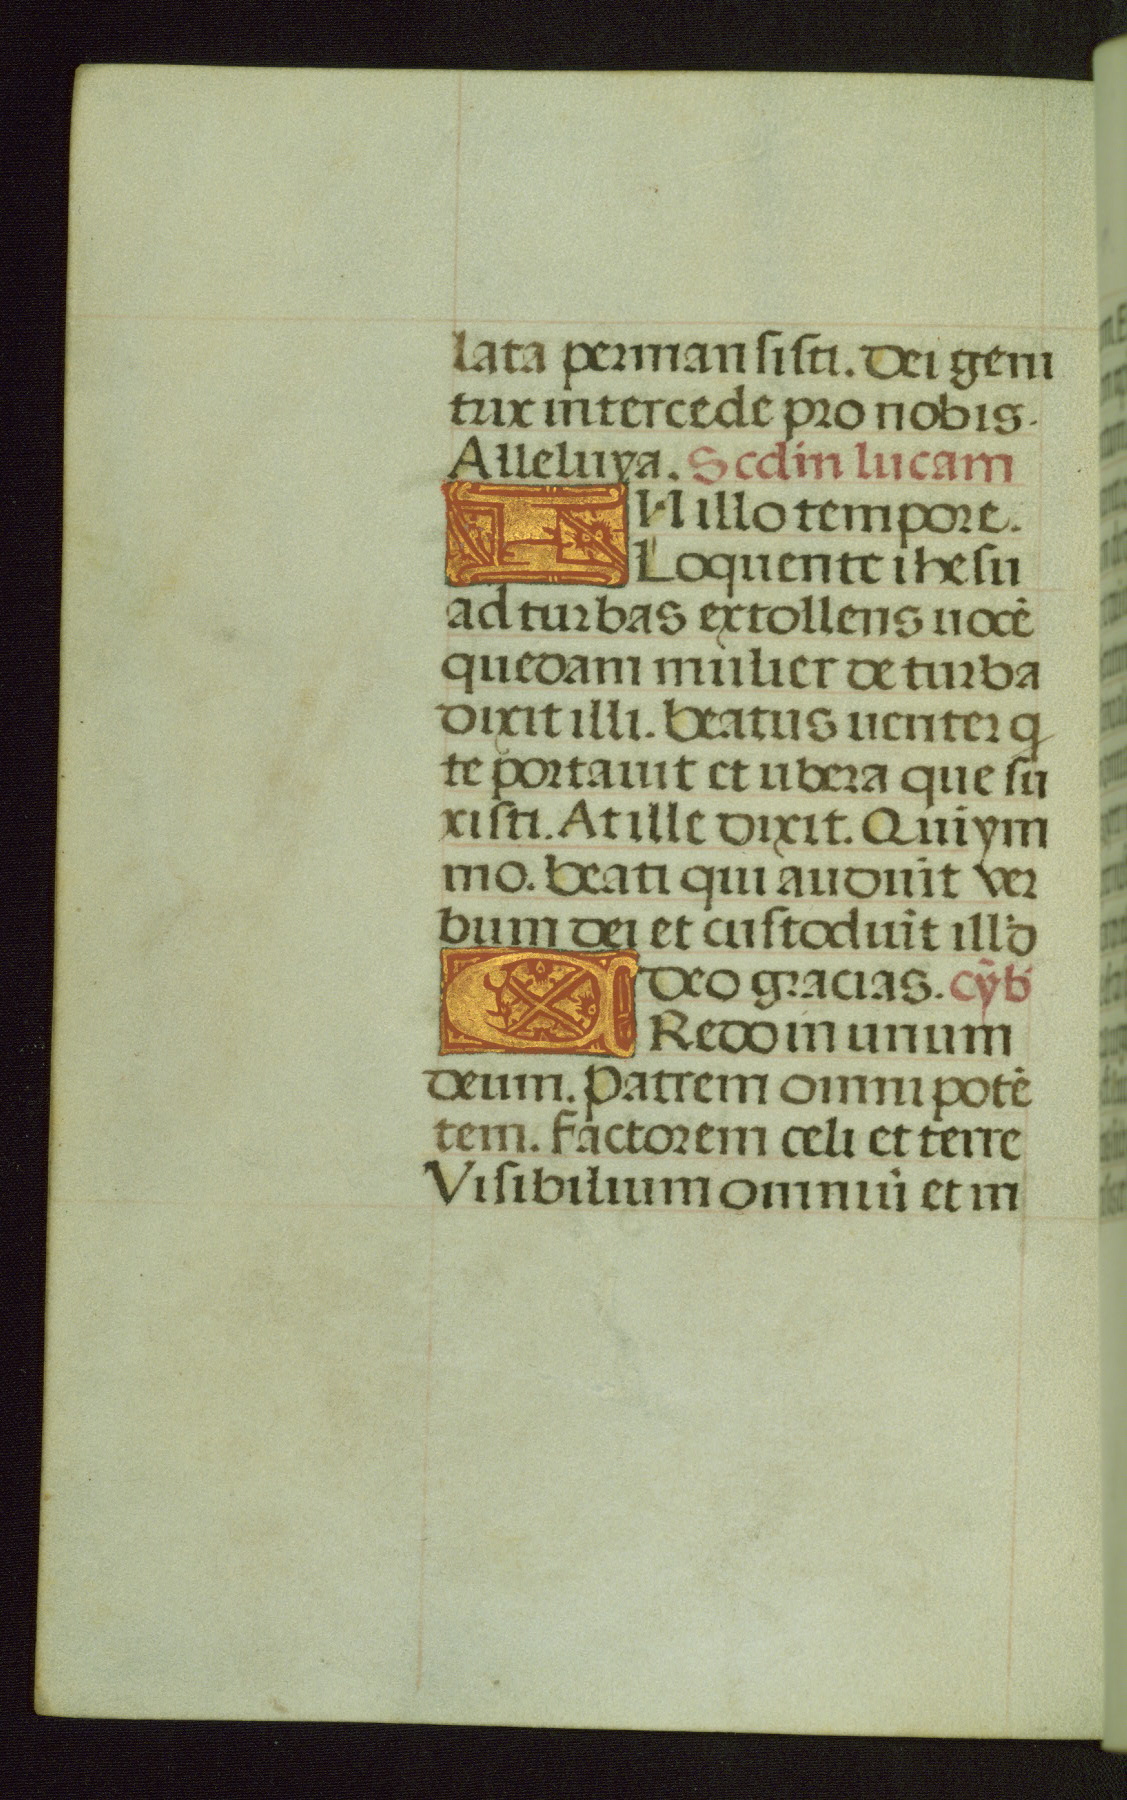 lata permansisti. Dei geni
trix intercede pro nobis.
Alleluya. Scdm lucam
IN illo tempore.
Loquente ihesu
ad turbas extollens uocē
quedam mulier de turba
dixit illi. beatus uenter q
te portauit et ubera que su
xisti. At ille dixit. Quiym
mo. beati qui audiūt ver
bum dei et custodiūt ill'd
Deo gracias. Cȳb'
CRedo in unum
deum. Patrem omnipotē
tem. Factorem celi et terre
Visibilium omniū et in